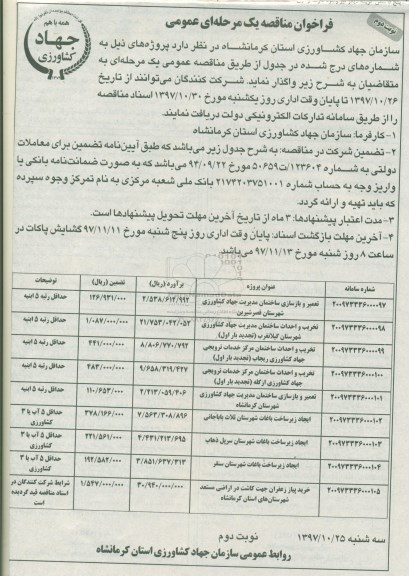 نوبت دوم
فراخوان مناقصه یک مرحله‌ای عمومی
همه با هم
جهاد
کشاورزی
سازمان جهاد کشاورزی استان کرمانشاه در نظر دارد پروژه‌های ذیل به
شماره‌های درج شده در جدول از طریق مناقصه عمومی یک مرحله‌ای به
متقاضیان به شرح زیر واگذار نماید. شرکت کنندگان می‌توانند از تاریخ
۱۳۹۷/۱۰/۲۶ تا پایان وقت اداری روز یکشنبه مورخ ۱۳۹۷/۱۰/۳۰ اسناد مناقصه
را از طریق سامانه تدارکات الکترونیکی دولت دریافت نمایند.
۱- کارفرما: سازمان جهاد کشاورزی استان کرمانشاه
۲- تضمین شرکت در مناقصه: به شرح جدول زیر می‌باشد که طبق آیین‌نامه تضمین برای معاملات
دولتی به شماره ۱۲۳۴۰۲/ت۵۰۶۵۹ مورخ ۹۴/۰۹/۲۲ می‌باشد که به صورت ضمانت‌نامه بانکی یا
واریز وجه به حساب شماره ۲۱۷۴۲۰۲۷۵۱۰۰۱ بانک ملی شعبه مرکزی به نام تمرکز وجوه سپرده
که باید تهیه و ارائه گردد.
۳- مدت اعتبار پیشنهادها: ۳ ماه از تاریخ آخرین مهلت تحویل پیشنهادها است.
۴- آخرین مهلت بازگشت اسناد: پایان وقت اداری روز پنج شنبه مورخ ۹۷/۱۱/۱۱ گشایش پاکات در
ساعت ۸ روز شنبه مورخ ۹۷/۱۱/۱۳ می‌باشد.
شماره سامانه عنوان پروژه برآورد (ریال) تضمین (ریال) توضیحات
۲۰۰۹۷۳۳۳۶۰۰۰۰۹۷ تعمیر و بازسازی ساختمان مدیریت جهاد کشاورزی شهرستان قصرشیرین ۲/۵۳۸/۶۱۲/۹۹۲ ۱۲۶/۹۳۱/۰۰۰ حداقل رتبه ۵ ابنیه
۲۰۰۹۷۳۳۳۶۰۰۰۰۹۸ تخریب و احداث ساختمان مدیریت جهاد کشاورزی شهرستان گیلانغرب (تجدید بار اول) ۲۱/۷۵۳/۰۲۲/۰۵۲ ۱/۰۸۷/۰۰۰/۰۰۰ حداقل رتبه ۵ ابنیه
۲۰۰۹۷۳۳۳۶۰۰۰۰۹۹ تخریب و احداث ساختمان مرکز خدمات ترویجی جهاد کشاورزی ریجاب (تجدید بار اول) ۸/۸۰۶/۷۷۰/۷۹۲ ۴۴۱/۰۰۰/۰۰۰ حداقل رتبه ۵ ابنیه
۲۰۰۹۷۳۳۳۶۰۰۰۱۰۰ تخریب و احداث ساختمان مرکز خدمات ترویجی جهاد کشاورزی ازگله (تجدید بار اول) ۹/۶۵۸/۳۱۹/۴۲۷ ۴۸۳/۰۰۰/۰۰۰ حداقل رتبه ۵ ابنیه
۲۰۰۹۷۳۳۳۶۰۰۰۱۰۱ تعمیر و بازسازی ساختمان مدیریت جهاد کشاورزی شهرستان کرمانشاه ۲/۲۱۳/۰۵۹/۴۰۶ ۱۱۰/۶۵۳/۰۰۰ حداقل رتبه ۵ ابنیه
۲۰۰۹۷۳۳۳۶۰۰۰۱۰۲ ایجاد زیرساخت باغات شهرستان ثلاث باباجانی ۷/۵۶۳/۳۰۸/۸۹۶ ۳۷۸/۱۶۶/۰۰۰ حداقل ۵ آب یا ۳ کشاورزی
۲۰۰۹۷۳۳۳۶۰۰۰۱۰۳ ایجاد زیرساخت باغات شهرستان سرپل ذهاب ۴/۴۳۱/۲۱۳/۶۹۵ ۲۲۱/۵۶۱/۰۰۰ حداقل ۵ آب یا ۳ کشاورزی
۲۰۰۹۷۳۳۳۶۰۰۰۱۰۴ ایجاد زیرساخت باغات شهرستان سنقر ۳/۸۵۱/۶۳۷/۳۱۳ ۱۹۲/۵۸۲/۰۰۰ حداقل ۵ آب یا ۳ کشاورزی
۲۰۰۹۷۳۳۳۶۰۰۰۱۰۵ خرید پیاز زعفران جهت کاشت در اراضی مستعد شهرستان‌های استان کرمانشاه ۳۰/۹۴۰/۰۰۰/۰۰۰ ۱/۵۴۷/۰۰۰/۰۰۰ شرایط شرکت کنندگان در اسناد مناقصه قید گردیده است
سه شنبه ۱۳۹۷/۱۰/۲۵ نوبت دوم
روابط عمومی سازمان جهاد کشاورزی استان کرمانشاه